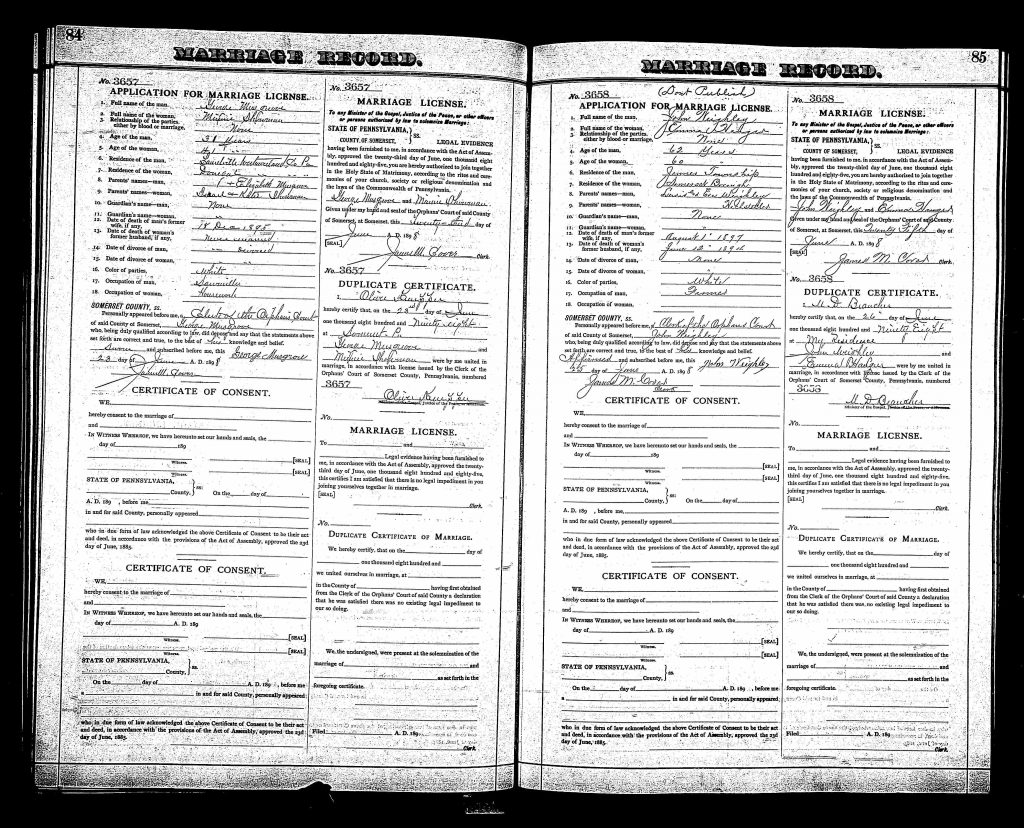 84
MARRIAGE RECORD.
No. 3657
APPLICATION FOR MARRIAGE LICENSE.
1. Full name of the man, George Musgrove
2. Full name of the woman,
3. Relationship of the parties, either by blood or marriage, None
4. Age of the man, Years
5. Age of the woman,
6. Residence of the man,
7. Residence of the woman,
8. Parents' names—man, & Elizabeth Musgrove
9. Parents' names—woman,
10. Guardian's name—man, None
11. Guardian's name—woman,
12. Date of death of man's former wife, if any, 18 Dec 1895
13. Date of death of woman's former husband, if any, Never married
14. Date of divorce of man,
15. Date of divorce of woman,
16. Color of parties, White
17. Occupation of man,
18. Occupation of woman, Housework
SOMERSET COUNTY, SS.
Personally appeared before me, a Clerk of the Orphans Court
of said County of Somerset, George Musgrove
who, being duly qualified according to law, did depose and say that the statements above
set forth are correct and true, to the best of his knowledge and belief.
Sworn and subscribed before me, this George Musgrove
23 day of June A. D. 1898
James M. Cover
CERTIFICATE OF CONSENT.
WE,
hereby consent to the marriage of
and
IN WITNESS WHEREOF, we have hereunto set our hands and seals, the
day of 189
[SEAL]
Witness.
[SEAL]
Witness.
STATE OF PENNSYLVANIA, ss:
County, On the day of
A. D. 189 , before me,
in and for said County, personally appeared
who in due form of law acknowledged the above Certificate of Consent to be their act
and deed, in accordance with the provisions of the Act of Assembly, approved the 23d
day of June, 1885.
CERTIFICATE OF CONSENT.
WE,
hereby consent to the marriage of
and
IN WITNESS WHEREOF, we have hereunto set our hands and seals, the
day of A. D. 189
[SEAL]
Witness.
[SEAL]
Witness.
STATE OF PENNSYLVANIA, ss.
County,
On the day of A. D. 189 , before me
a in and for said County, personally appeared
who in due form of law acknowledged the above Certificate of Consent to be their act
and deed, in accordance with the provisions of the Act of Assembly, approved the 23d
day of June, 1885.
No. 3657
MARRIAGE LICENSE.
To any Minister of the Gospel, Justice of the Peace, or other officers
or persons authorized by law to solemnize Marriage:
STATE OF PENNSYLVANIA, ss.
COUNTY OF SOMERSET, LEGAL EVIDENCE
having been furnished to me, in accordance with the Act of Assem-
bly, approved the twenty-third day of June, one thousand eight
hundred and eighty-five, you are hereby authorized to join together
in the Holy State of Matrimony, according to the rites and cere-
monies of your church, society or religious denomination and
the laws of the Commonwealth of Pennsylvania.
George Musgrove and
Given under my hand and seal of the Orphans' Court of said County
of Somerset, at Somerset, this day of
June A. D. 1898
[SEAL]
James M. Cover Clerk.
No. 3657
DUPLICATE CERTIFICATE.
I, Olive
hereby certify that on the 23rd day of June
one thousand eight hundred and Ninety eight
at Somerset Pa
George Musgrove
and were by me united in
marriage, in accordance with license issued by the Clerk of the
Orphans' Court of Somerset County, Pennsylvania, numbered
3657
Olive
No.
MARRIAGE LICENSE.
To and
Legal evidence having been furnished to
me, in accordance with the Act of Assembly, approved the twenty-
third day of June, one thousand eight hundred and eighty-five,
this certifies that I am satisfied that there is no legal impediment to you
joining yourselves together in marriage.
[SEAL]
Clerk.
No.
DUPLICATE CERTIFICATE OF MARRIAGE.
We hereby certify, that on the day of
one thousand eight hundred and
we united ourselves in marriage, at
in the County of having first obtained
from the Clerk of the Orphans' Court of said County a declaration
that he was satisfied there was no existing legal impediment to
our so doing.
We, the undersigned, were present at the solemnization of the
marriage of and
as set forth in the
foregoing certificate.
Filed A. D. 189
Clerk.
85
MARRIAGE RECORD.
No. 3658 Dont Publish
APPLICATION FOR MARRIAGE LICENSE.
1. Full name of the man, John Weighley
2. Full name of the woman,
3. Relationship of the parties, either by blood or marriage, None
4. Age of the man, 62 Years
5. Age of the woman, 60 "
6. Residence of the man, Township
7. Residence of the woman, Somerset Borough
8. Parents' names—man, Weighley
9. Parents' names—woman,
10. Guardian's name—man, None
11. Guardian's name—woman,
12. Date of death of man's former wife, if any, August 1st 1897
13. Date of death of woman's former husband, if any, June 12th
14. Date of divorce of man, None
15. Date of divorce of woman,
16. Color of parties, White
17. Occupation of man, Farmer
18. Occupation of woman,
SOMERSET COUNTY, SS.
Personally appeared before me, a Clerk of the Orphans Court
of said County of Somerset, John Weighley
who, being duly qualified according to law, did depose and say that the statements above
set forth are correct and true, to the best of his knowledge and belief.
Affirmed and subscribed before me, this John Weighley
25 day of June A. D. 1898
James M. Cover
Clerk
CERTIFICATE OF CONSENT.
WE,
hereby consent to the marriage of
and
IN WITNESS WHEREOF, we have hereunto set our hands and seals, the
day of 189
[SEAL]
Witness.
[SEAL]
Witness.
STATE OF PENNSYLVANIA, ss:
County, On the day of
A. D. 189 , before me
in and for said County, personally appeared
who in due form of law acknowledged the above Certificate of Consent to be their act
and deed, in accordance with the provisions of the Act of Assembly, approved the 23d
day of June, 1885.
CERTIFICATE OF CONSENT.
WE,
hereby consent to the marriage of
and
IN WITNESS WHEREOF, we have hereunto set our hands and seals, the
day of A. D. 189
[SEAL]
Witness.
[SEAL]
Witness.
STATE OF PENNSYLVANIA, ss.
County,
On the day of A. D. 189 , before me
a in and for said County, personally appeared
who in due form of law acknowledged the above Certificate of Consent to be their act
and deed, in accordance with the provisions of the Act of Assembly, approved the 23d
day of June, 1885.
No. 3658
MARRIAGE LICENSE.
To any Minister of the Gospel, Justice of the Peace, or other officers
or persons authorized by law to solemnize Marriage:
STATE OF PENNSYLVANIA, ss.
COUNTY OF SOMERSET, LEGAL EVIDENCE
having been furnished to me, in accordance with the Act of Assem-
bly, approved the twenty-third day of June, one thousand eight
hundred and eighty-five, you are hereby authorized to join together
in the Holy State of Matrimony, according to the rites and cere-
monies of your church, society or religious denomination and
the laws of the Commonwealth of Pennsylvania.
John Weighley and
Given under my hand and seal of the Orphans' Court of said County
of Somerset, at Somerset, this Twenty Fifth day of
June A. D. 1898
[SEAL]
James M. Cover Clerk.
No. 3658
DUPLICATE CERTIFICATE.
I, M. D.
hereby certify that on the 26" day of June
one thousand eight hundred and Ninety Eight
at My Residence
John Weighley
and were by me united in
marriage, in accordance with license issued by the Clerk of the
Orphans' Court of Somerset County, Pennsylvania, numbered
3658
M. D.
No.
MARRIAGE LICENSE.
To and
Legal evidence having been furnished to
me, in accordance with the Act of Assembly, approved the twenty-
third day of June, one thousand eight hundred and eighty-five,
this certifies that I am satisfied that there is no legal impediment to you
joining yourselves together in marriage.
[SEAL]
Clerk.
No.
DUPLICATE CERTIFICATE OF MARRIAGE.
We hereby certify, that on the day of
one thousand eight hundred and
we united ourselves in marriage, at
in the County of having first obtained
from the Clerk of the Orphans' Court of said County a declaration
that he was satisfied there was no existing legal impediment to
our so doing.
We, the undersigned, were present at the solemnization of the
marriage of and
as set forth in the
foregoing certificate.
Filed A. D. 189
Clerk.